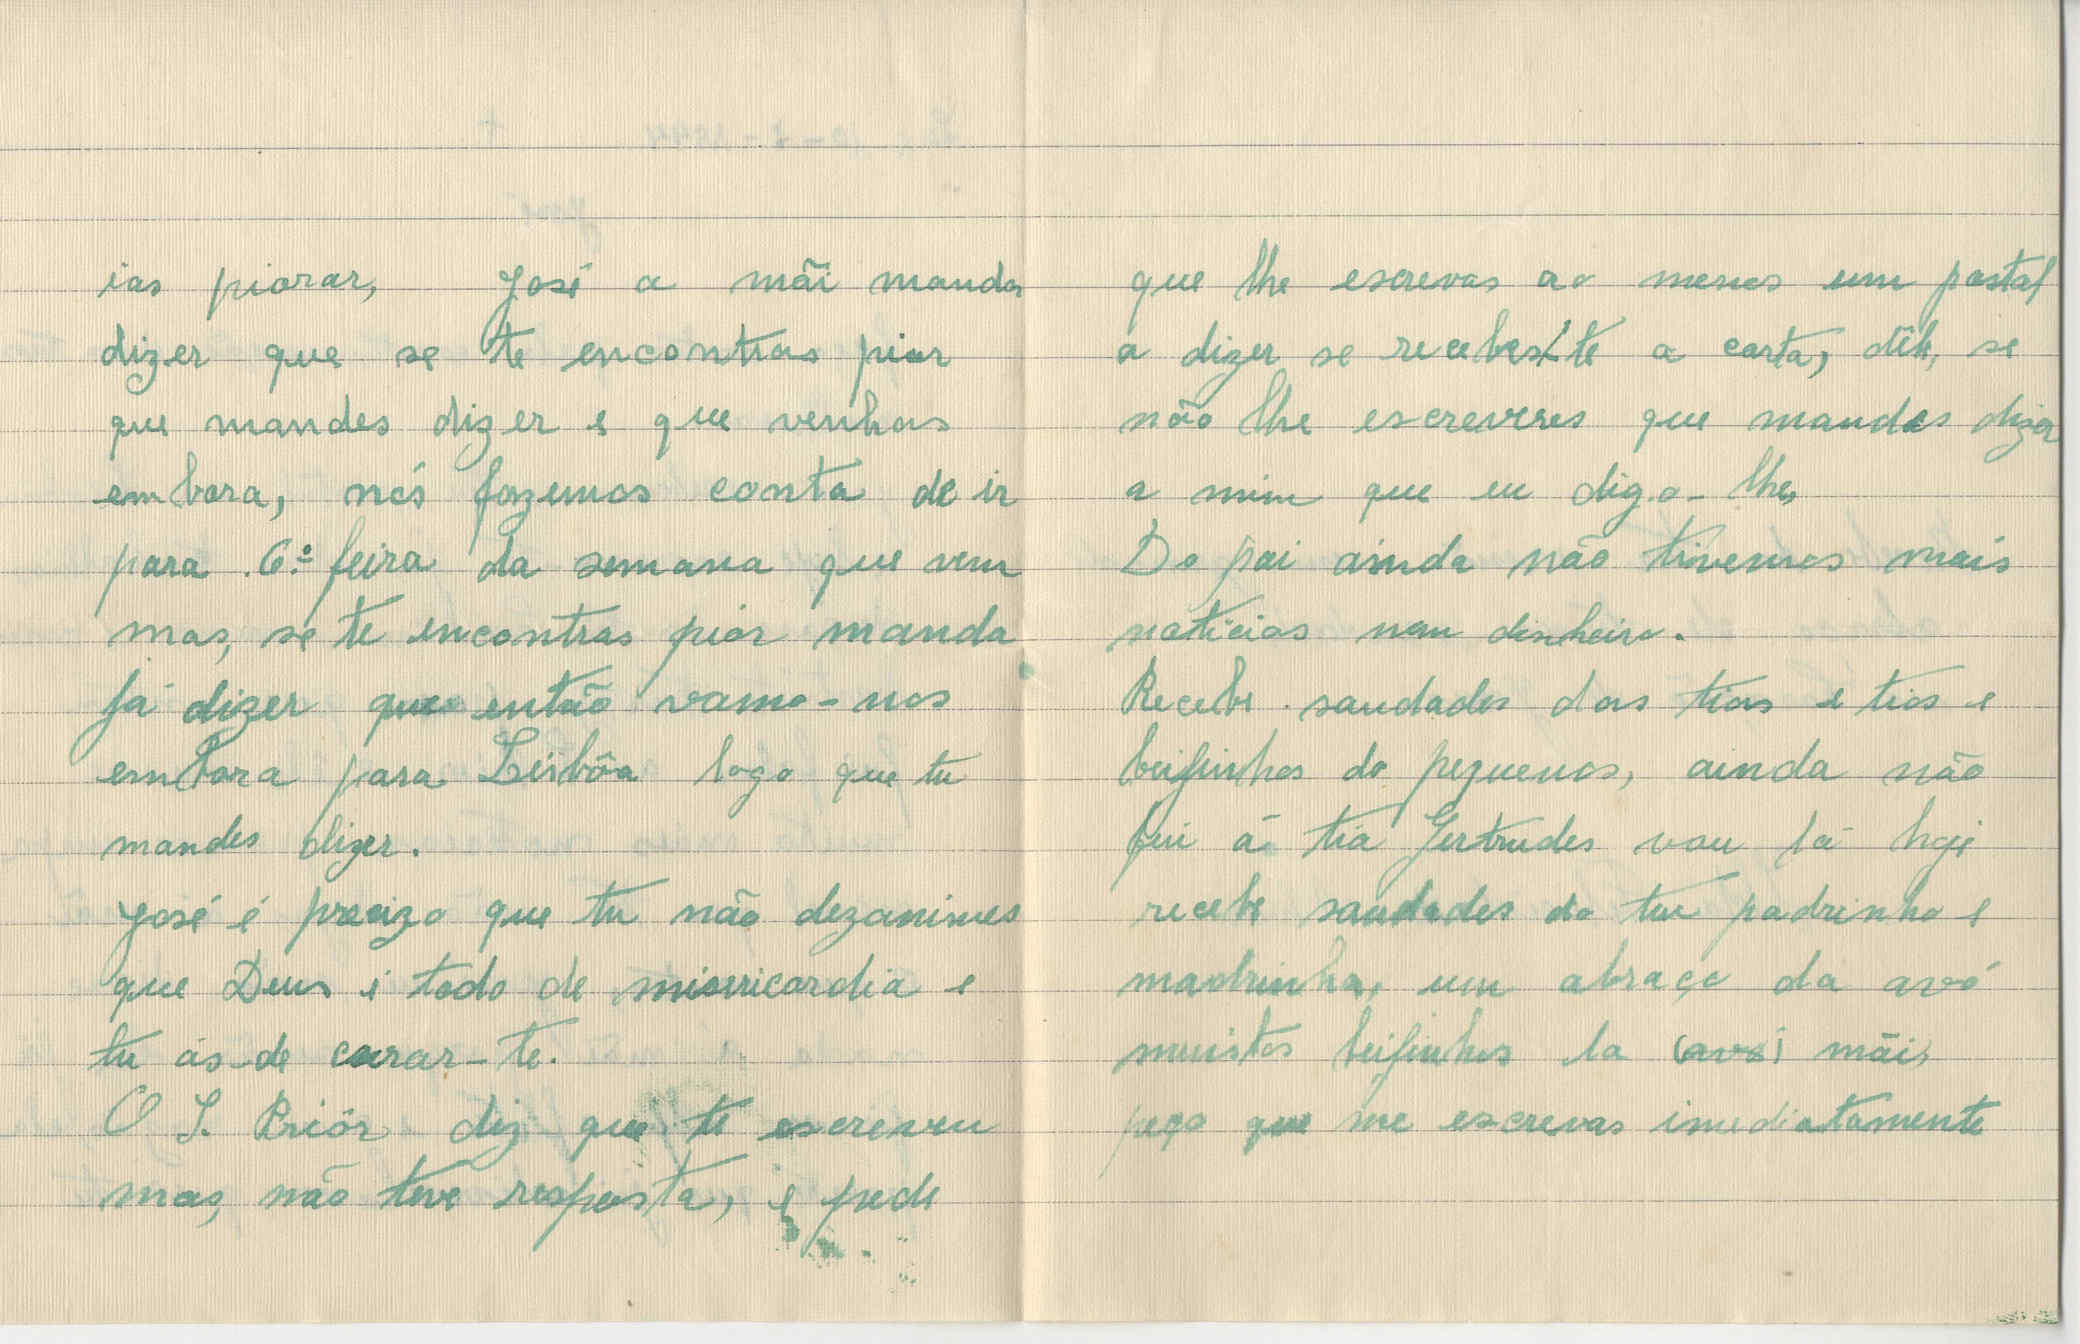 ias piorar, José a mãi manda
dizer que se te encontras pior
que mandes dizer e que venhas
embora, nós fazemos conta de ir
para 6.º feira da semana que vem
mas, se te encontras piór manda
já dizer que então vamo-nos
embora para Lisbôa logo que tu
mandes dizer.
José é precizo que tu não dezanimes
que Deus é todo de misericordia e
tu ás-de curar-te.
O S. Priôr diz que te escreveu
mas, não teve resposta, e pede
que lhe escrevas ao menos um postal
a dizer se recebeste a carta, se
não lhe escreveres que mandes dizer
a mim que eu digo-lhe,
Do pai ainda não tivemos mais
noticias nem dinheiro.
Recebe saudades das tias e tios e
beijinhos do pequenos, ainda não
fui á tia Gertrudes vou lá hoje
recebe saudades do teu padrinho e
madrinha, um abraço da avó
muistos beijinhos la (avó) mãi,
peço que me escrevas imediatamente